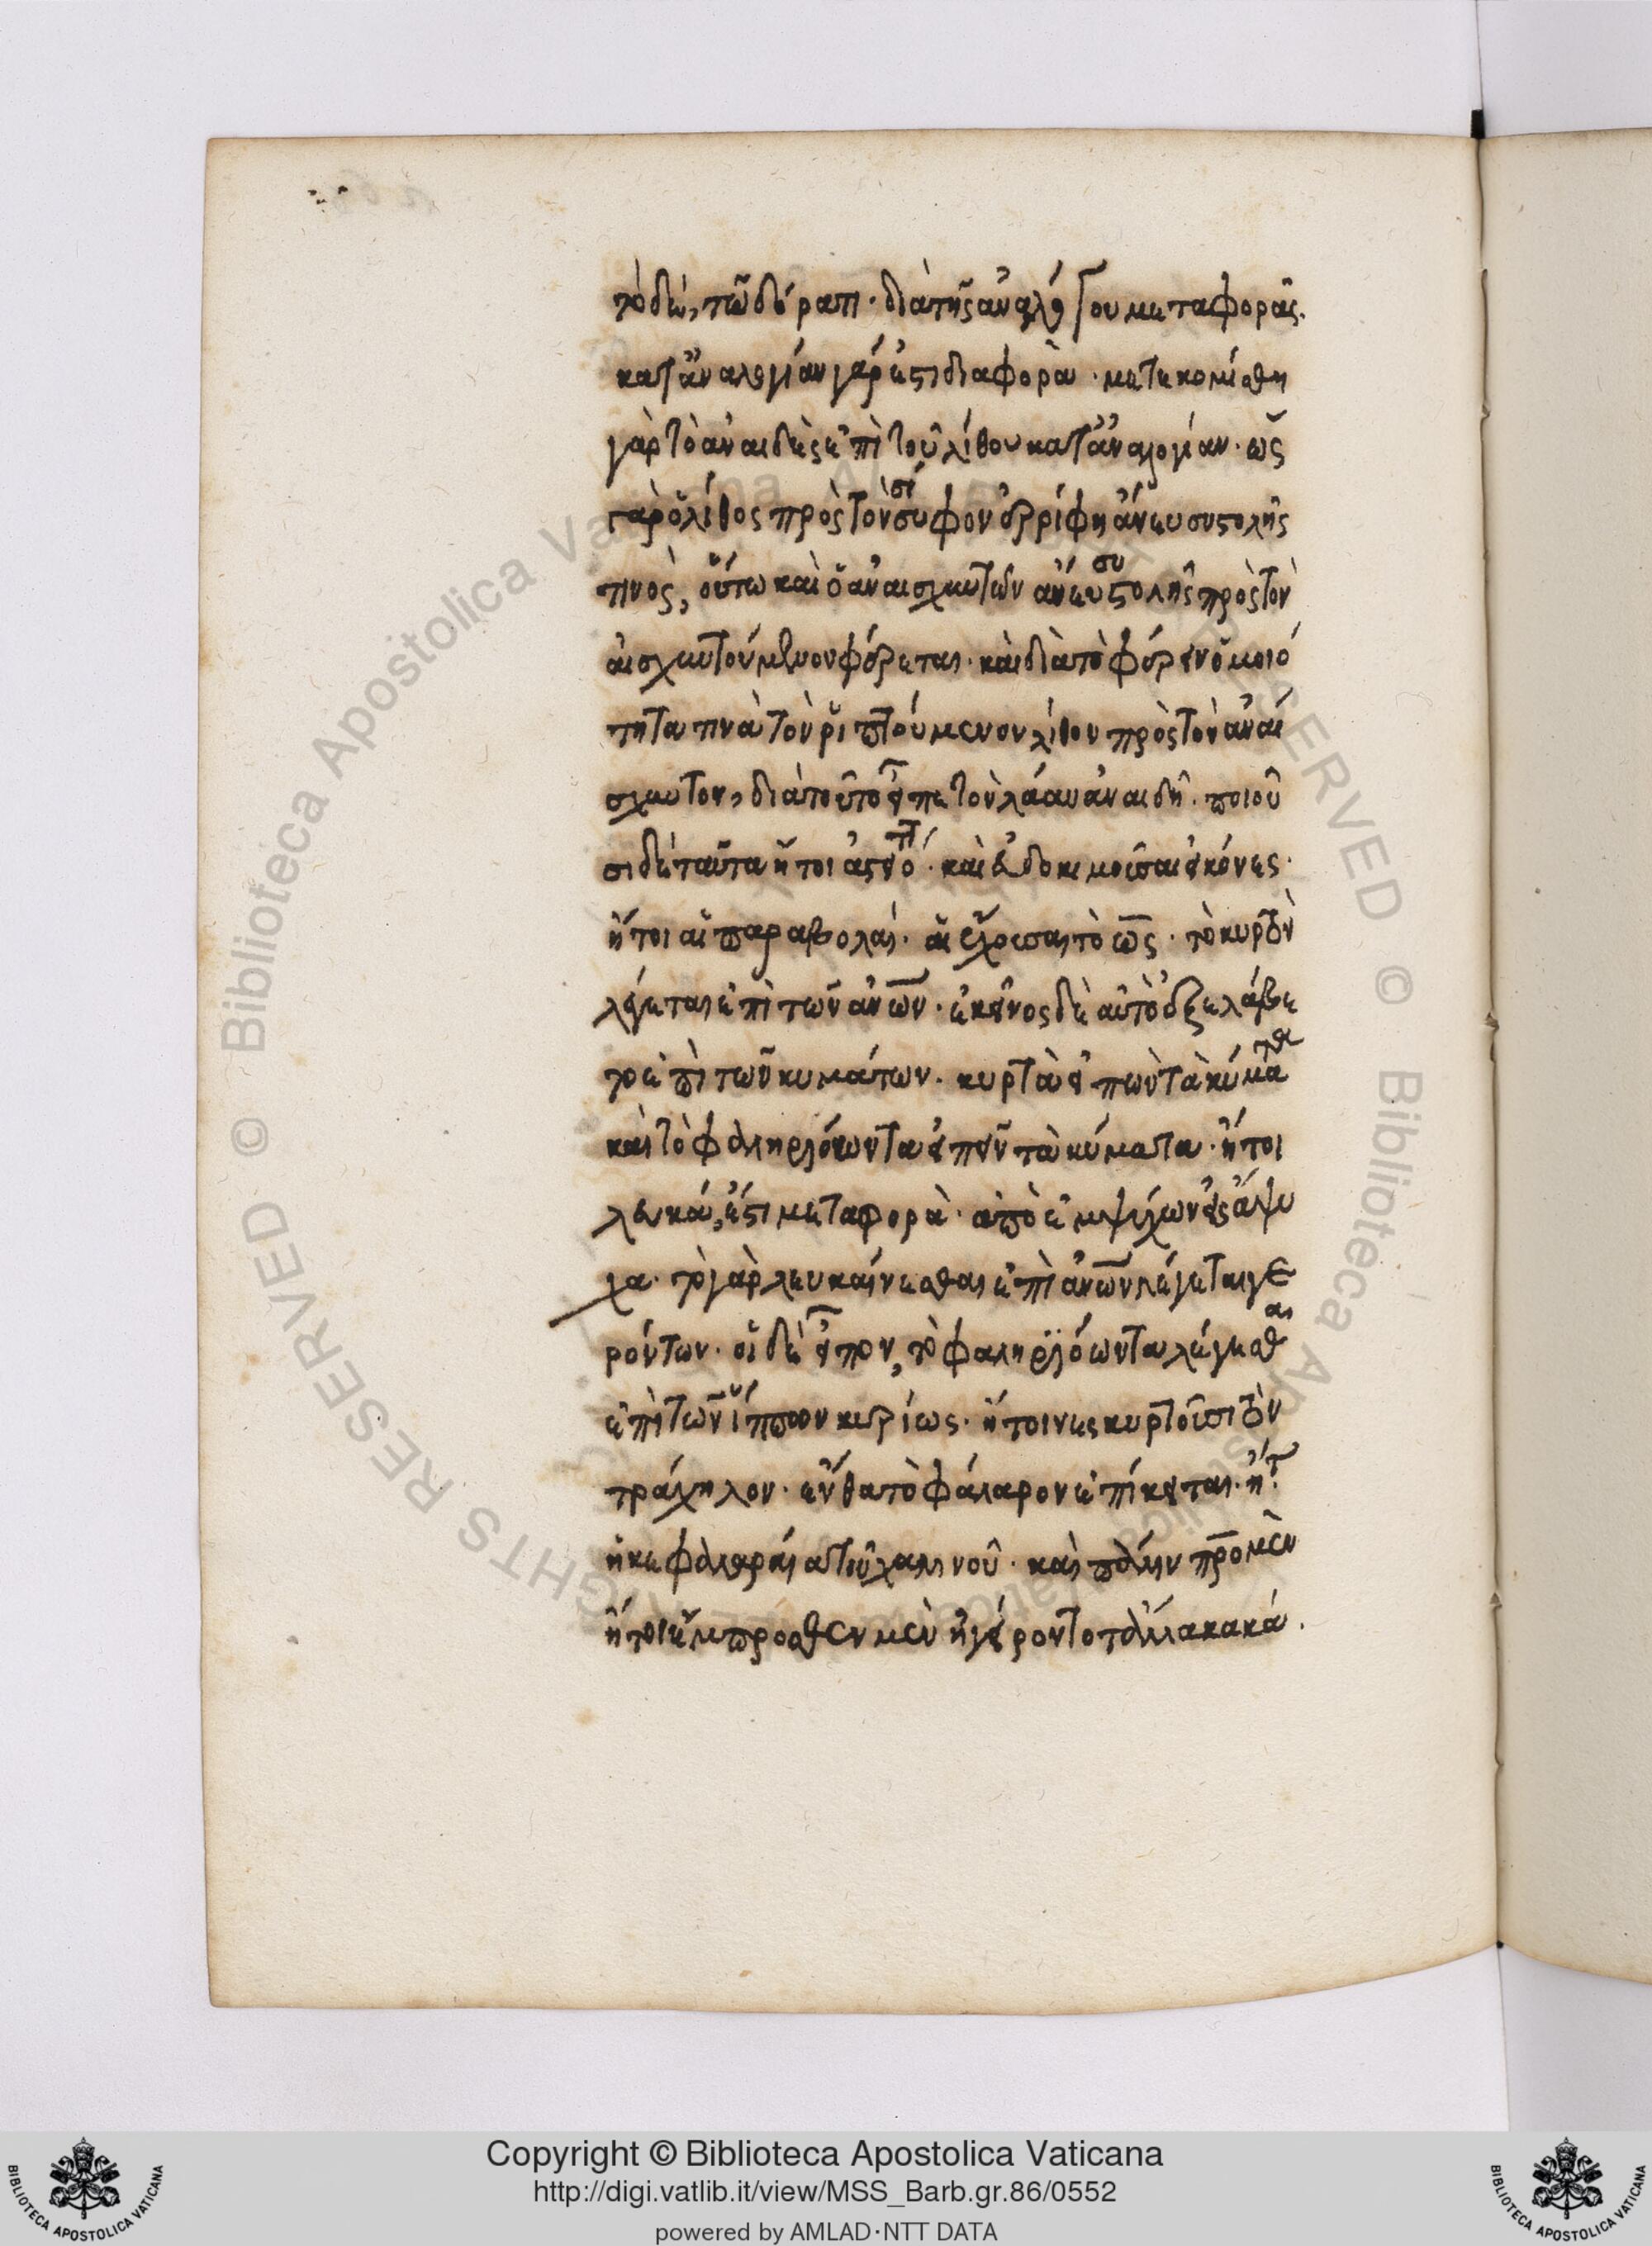 τὸ δὲ, τῶ δόρατι· διὰ τῆς ἀναλόγου μεταφορᾶς.
κατ' ἀναλογίαν γάρ ἐστι διαφορὰ· μετεκομίσθη
γὰρ τὸ ἀναιδὲς ἐπὶ τοῦ λίθου κατ' ἀναλογίαν· ὡς
γὰρ ὁ λίθος πρὸς τὸν σίσυφον ἐρρίφη ἄνευ συστολῆς
τινὸς, οὕτω καὶ ὁ ἀναισχυντῶν ἄνευ συστολῆς πρὸς τὸν
αἰσχυντούμενον φέρεται· καὶ διὰ τὸ φέρειν ὁμοιό
τητα τινὰ τὸν ῥιπτούμενον λίθον πρὸς τὸν ἀναί
σχυντον, διὰ τοῦτο εἶπε τὸν λάαν ἀναιδῆ· ποιοῦ
σι δὲ ταῦτα ἤτοι ἀστεῖο· καὶ εὐδοκιμοῦσαι εἰκόνες·
ἤτοι αἱ παραβολαί· αἱ ἔχουσαι τὸ ὡς· τὸ κυρτὸν
λέγεται ἐπὶ τῶν ἀνων· ἐκεῖνος δὲ αὐτὸ ἐξελάβε
το ἐπὶ τῶν κυμάτων· κυρτὰ εἰπὼν τὰ κύματα
καὶ τὸ φαληριόωντα εἰπεῖν τὰ κύματα· ἤτοι
λευκά, ἐστι μεταφορὰ· ἀπὸ ἐμψύχων εἰς ἄψυ
χα· τὸ γὰρ λευκαίνεσθαι ἐπὶ ἀνων λέγεται γε
ρόντων· οἱ δὲ εἶπον, τὸ φαληριόωντα λέγεσθαι
ἐπὶ τῶν ἵππων κυρίως· ἤτοινες κυρτοῦσι τὸν
τράχηλον· ἔνθα τὸ φάλαρον ἐπίκειται· ἤτ
ἡ κεφαλαραία τοῦ χαλινοῦ· καὶ πάλιν πρὸ μὲν
ἤτοι ἔμπροσθεν μὲν ἠγείροντο τἄλλα κακά.
Copyright © Biblioteca Apostolica Vaticana
http://digi.vatlib.it/view/MSS_Barb.gr.86/0552
powered by AMLAD·NTT DATA